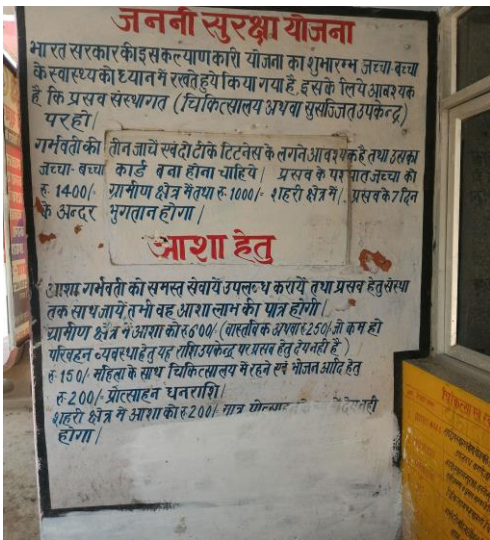 जननी सुरक्षा योजना
भारत सरकार की इस कल्याणकारी योजना का शुभारम्भ जच्चा-बच्चा
के स्वास्थ्य को ध्यान में रखते हुये किया गया है, इसके लिये आवश्यक
है कि प्रसव संस्थागत (चिकित्सालय अथवा सुसज्जित उपकेन्द्र)
पर हो।
गर्भवती की तीन जाचें एवं दो टीके टिटनेस के लगने आवश्यक है तथा उसका
जच्चा-बच्चा कार्ड बना होना चाहिये। प्रसव के पश्चात जच्चा की
रु 1400/- ग्रामीण क्षेत्र में तथा रु 1000/- शहरी क्षेत्र में। प्रसव के 7 दिन
के अन्दर भुगतान होगा।
आशा हेतु
आशा गर्भवती को समस्त सेवायें उपलब्ध करायें तथा प्रसव हेतु संस्था
तक साथ जायें तभी वह आशा लाभ की पात्र होगी।
ग्रामीण क्षेत्र में आशा को रु 600/- (वास्तविक अथवा रु 250/- जो कम हो
परिवहन व्यवस्था हेतु यह राशि उपकेन्द्र पर प्रसव हेतु देय नही है)
रु 150/- महिला के साथ चिकित्सालय में रहने एवं भोजन आदि हेतु
रु 200/- प्रोत्साहन धनराशि।
शहरी क्षेत्र में आशा को रु 200/- मात्र देय नही
होगा।